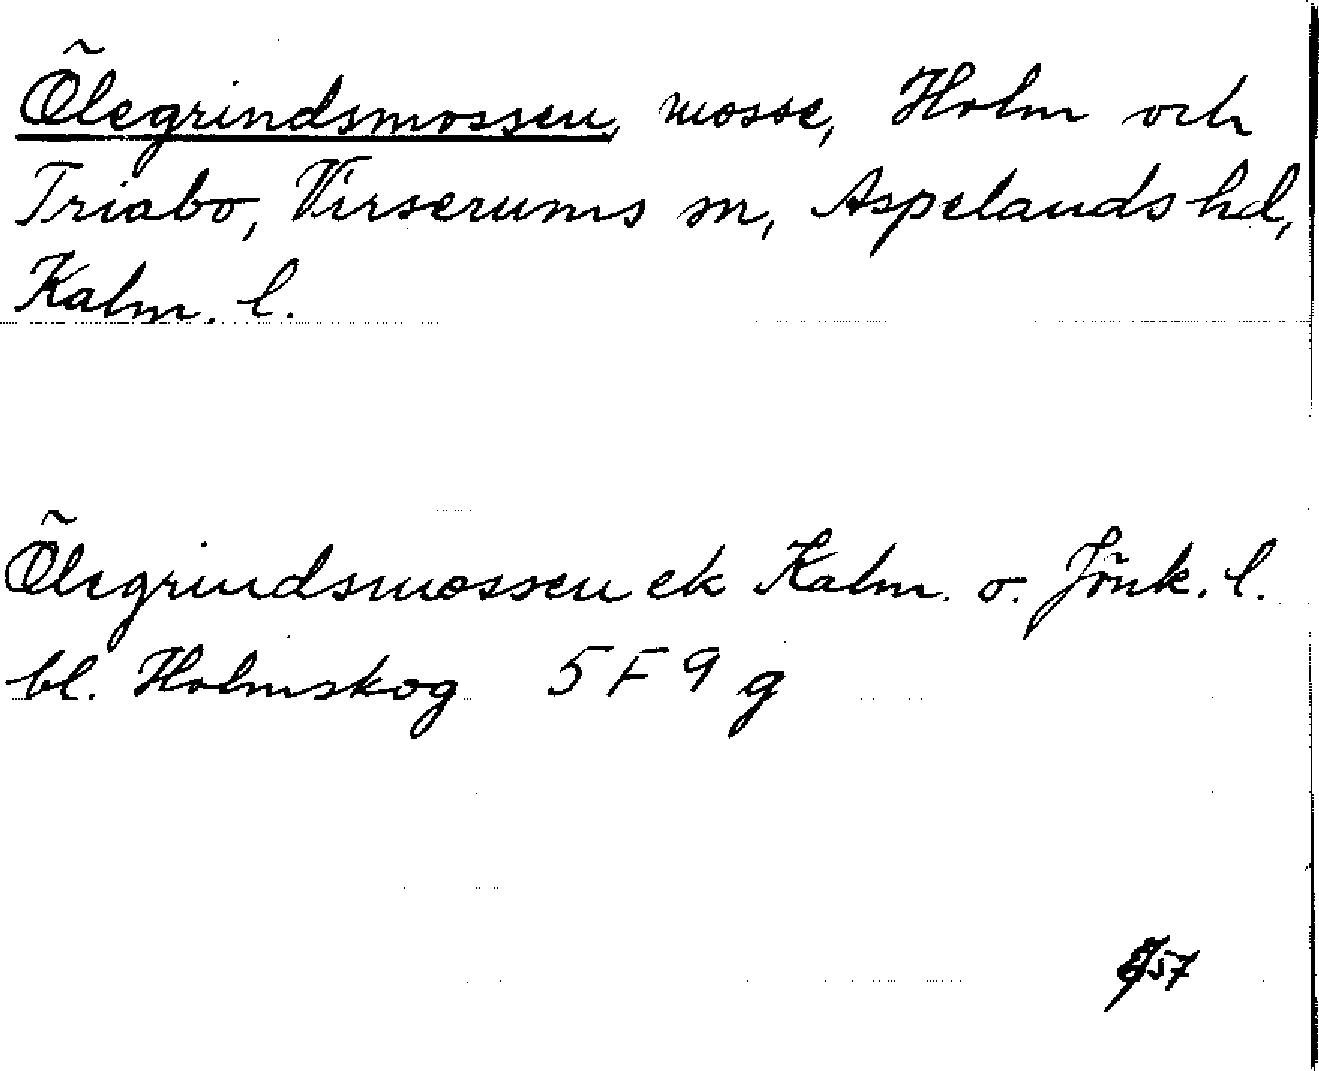 Ölegrindsmossen, mosse, Holm och
Triabo, Virserums sn, Aspelands hd,
Kalm. l.
Ölegrindsmossen ek Kalm. o. Jönk. l.
bl. Holmskog 5 F 9 g